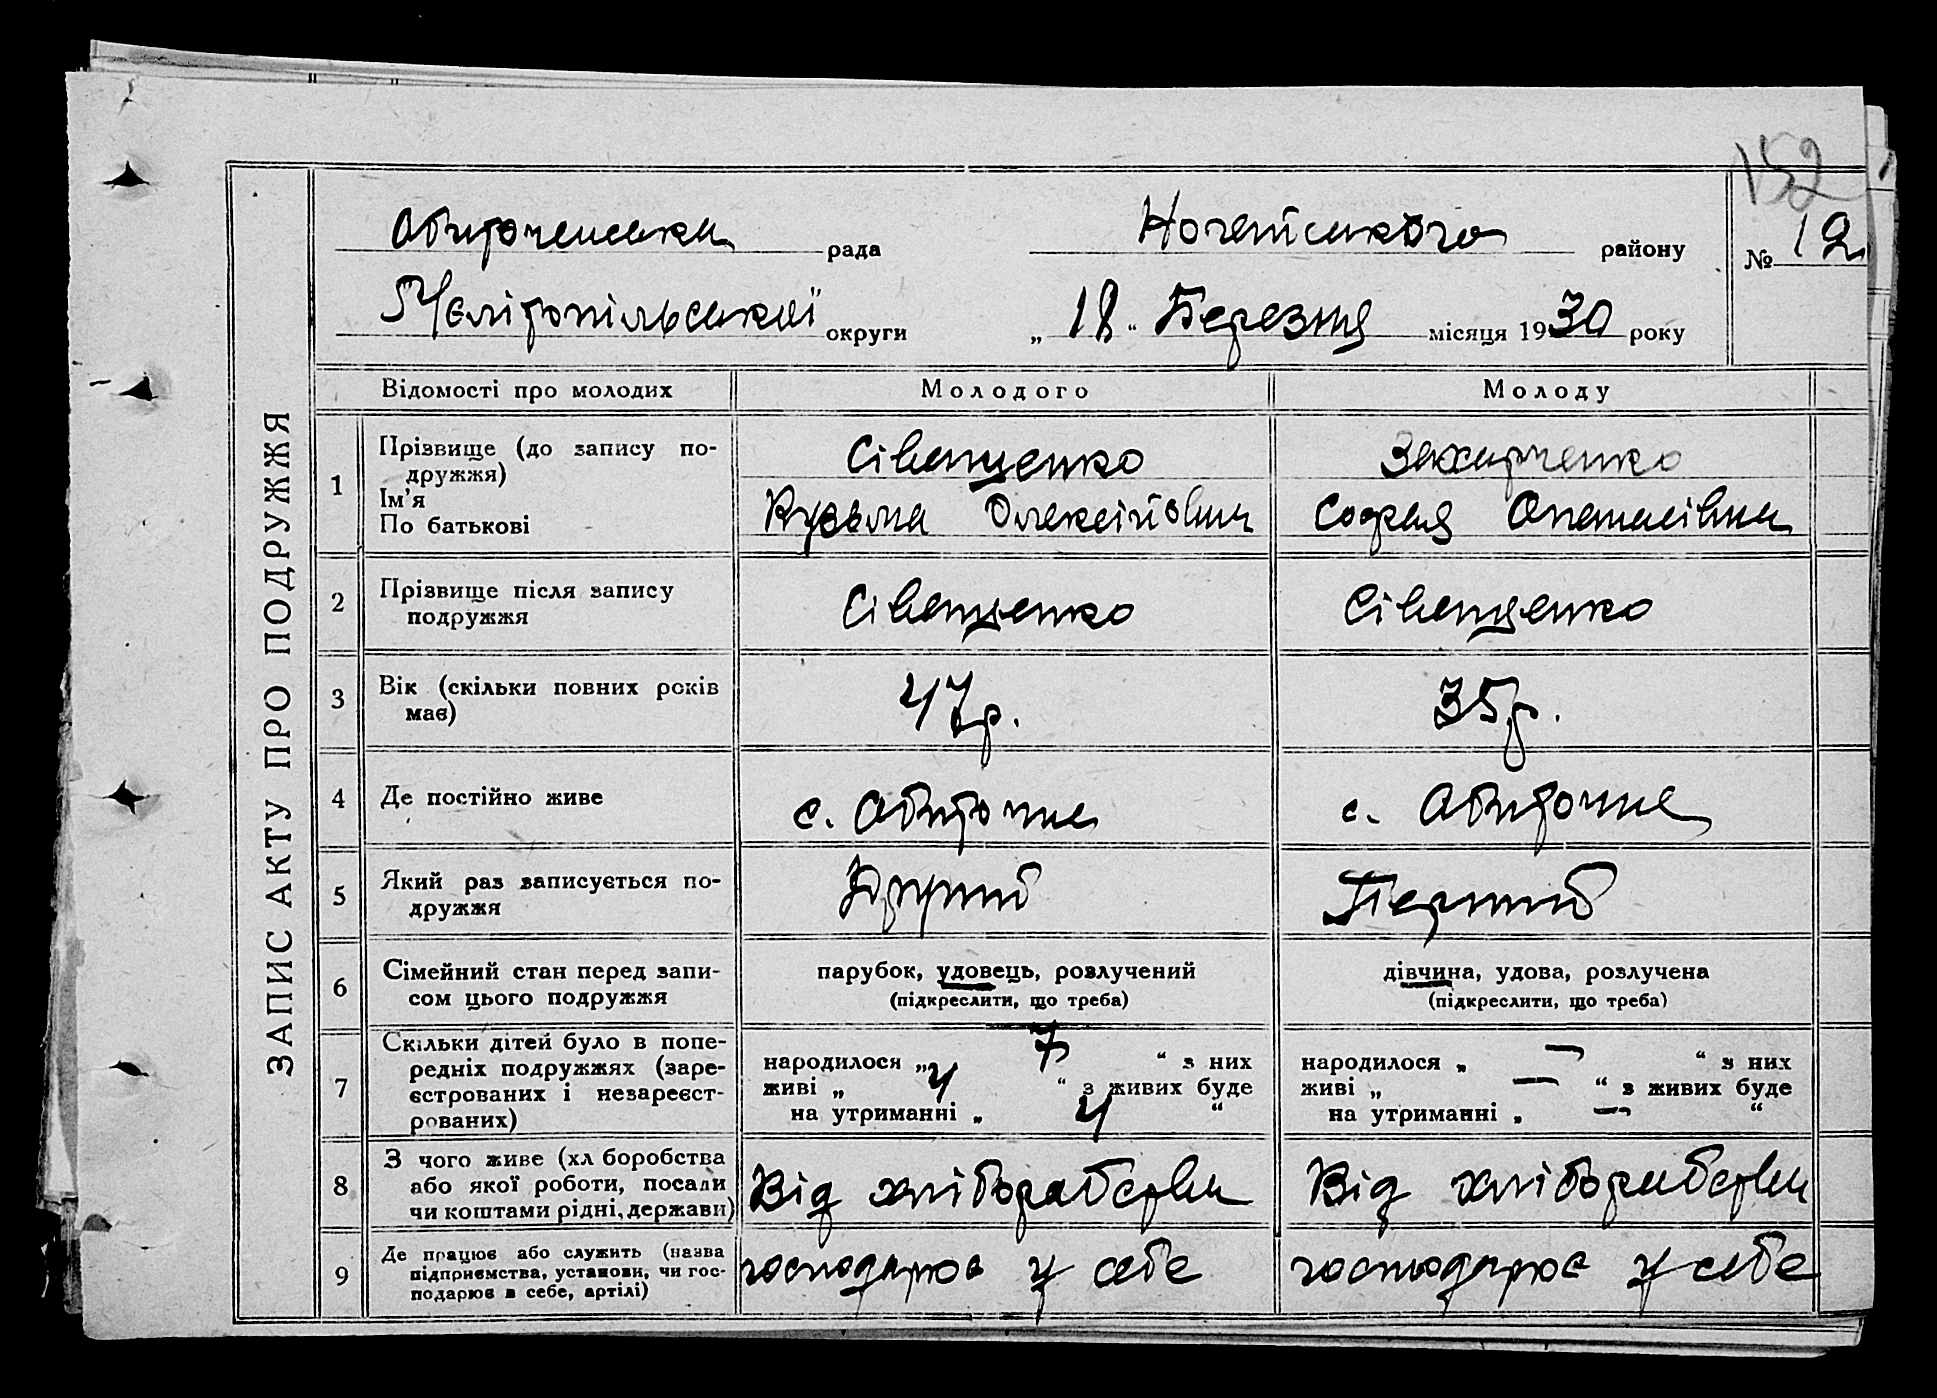 152
Обиточенська рада Ногайського району № 12
Мелітопільської округи „ 18 “ Березня місяця 1930 року
ЗАПИС АКТУ ПРО ПОДРУЖЖЯ
Відомості про молодих Молодого Молоду
1 Прізвище (до запису по-
дружжя) Сівенценко Захарченко
Ім'я
По батькові Кузьма Олексійович Софія Опанасівна
2 Прізвище після запису
подружжя Сівенценко Сівенценко
3 Вік (скільки повних років
має) 47 р. 35 р.
4 Де постійно живе с. Обиточне с. Обиточне
5 Який раз записується по-
дружжя Другий Перший
6 Сімейний стан перед запи-
сом цього подружжя
парубок, удовець, розлучений дівчина, удова, розлучена
(підкреслити, що треба) (підкреслити, що треба)
7 Скільки дітей було в попе-
редніх подружжях (заре-
єстрованих і незареєст-
рованих)
народилося „ 7 “ з них народилося „ — “ з них
живі „ 4 “ з живих буде живі „ — “ з живих буде
на утриманні „ 4 “ на утриманні „ — “
8 З чого живе (хл боробства
або якої роботи, посади
чи коштами рідні, держави)
Від хліборобства Від хліборобства
9 Де працює або служить (назва
підприємства, установи, чи гос-
подарює в себе, артілі)
господарює у себе господарює у себе